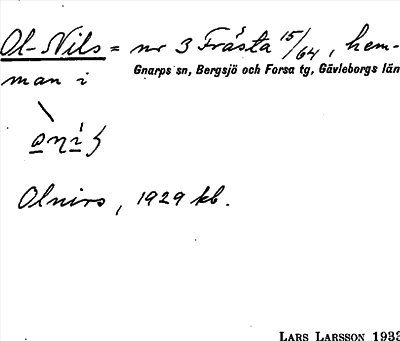 Ol-Nils = nr 3 Frästa 15/64, hem-
Gnarps sn, Bergsjö och Forsa tg, Gävleborgs län
man i
Olnirs, 1929 kb.
LARS LARSSON 1933